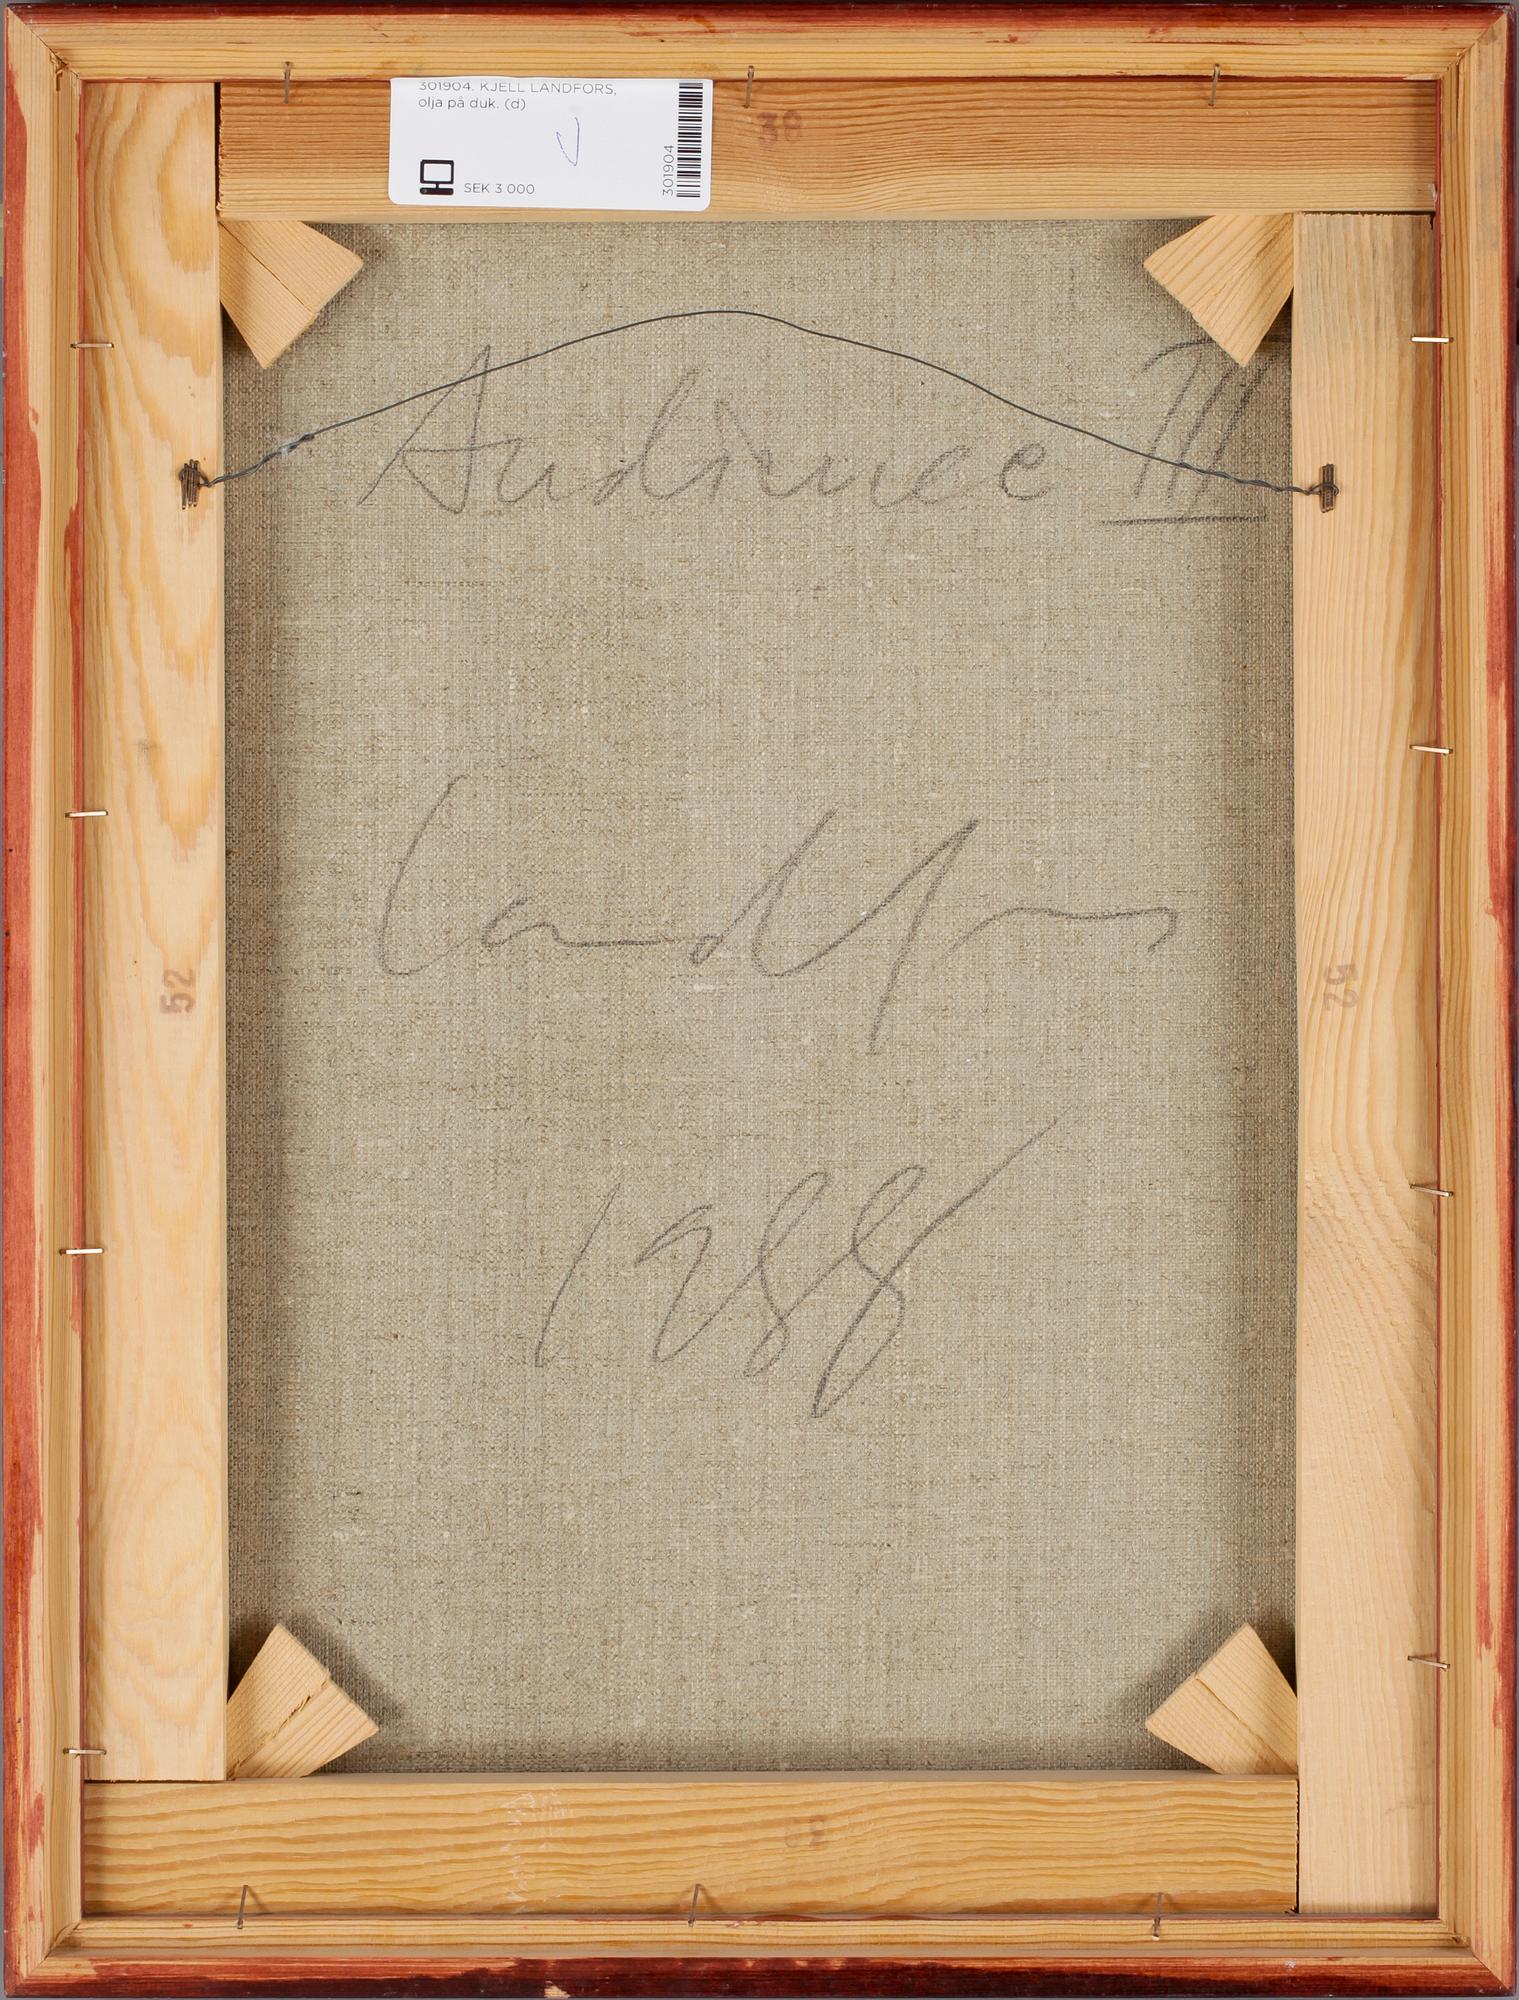 301904. KJELL LANDFORS,
olja på duk. (d)
SEK 3 000
301904
38
Audience III
Landfors
1988
52
52
38